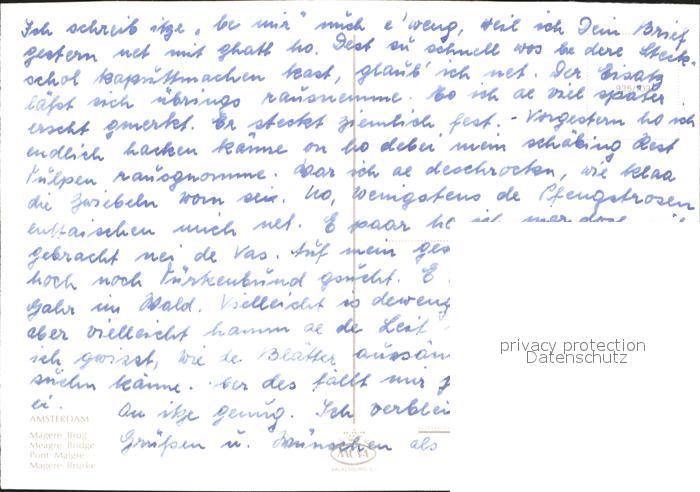 Ich schreib itze „be mir“ nuch e'weng, weil ich Dein Brief
gestern net mit ghatt ho. Dest su schnell wos be dere Steck-
schol kaputtmachen kast, glaub' ich net. Der Eisatz
läßt sich übrings rausnemme. Ho ich ae viel später
erscht gmerkt. Er steckt ziemlich fest. - Vorgestern ho ich
endlich hacken känne on ho debei mein schäbing Rest
Tulpen rausgnomme. War ich ae deschrocken, wie klaa
die Zwiebeln worn sei. No, wenigstens de Pfengstrosen
enttaischen mich net. E paar
gebracht nei de Vas. Auf mein
hoch noch Türkenbund gsucht. E
Gahr im Wald. Vielleicht is deweng
aber vielleicht hamm ae de Leit
ich gwisst, wie de Blätter
suchn känne. Aber des fällt mir
ei. On itze genug. Ich verblei
AMSTERDAM
Grüßen u. Wünschen als
Magere Brug
Meagre Bridge
Pont Maigre
Magere Brücke
privacy protection
Datenschutz